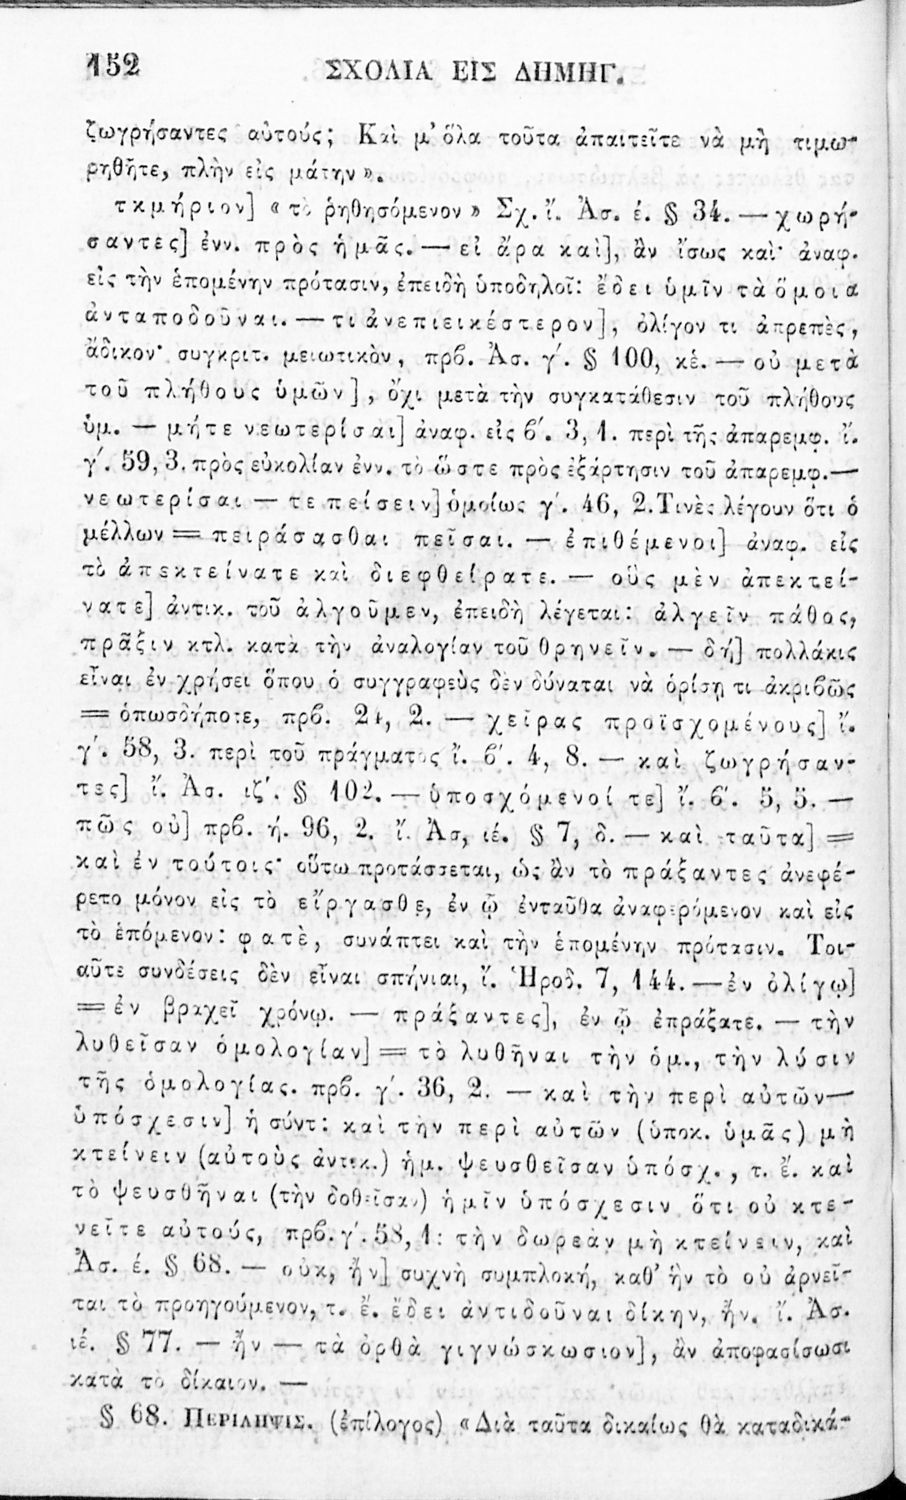 152 ΣΧΟΛΙΑ ΕΙΣ ΔΗΜΗΓ.
ζωγρήσαντες αὐτούς; Καὶ μ' ὅλα τοῦτα ἀπαιτεῖτε νὰ μὴ τιμω-
ρηθῆτε, πλὴν εἰς μάτην».
τκμήριον] «τὸ ῥηθησόμενον» Σχ. ἴ. Ἀσ. έ. § 34. — χωρή-
σαντες] ἐνν. πρὸς ἡμᾶς. — εἰ ἄρα καὶ], ἂν ἴσως καὶ· ἀναφ.
εἰς τὴν ἑπομένην πρότασιν, ἐπειδὴ ὑποδηλοῖ: ἔδει ὑμῖν τὰ ὅμοια
ἀνταποδοῦναι. — τι ἀνεπιεικέστερον], ὀλίγον τι ἀπρεπὲς,
ἄδικον· συγκριτ. μειωτικὸν, πρβ. Ἀσ. γ'. § 100, κἑ. — οὐ μετὰ
τοῦ πλήθους ὑμῶν], ὄχι μετὰ τὴν συγκατάθεσιν τοῦ πλήθους
ὑμ. — μήτε νεωτερίσαι] ἀναφ. εἰς β'. 3, 1. περὶ τῆς ἀπαρεμφ. ἴ.
γ'. 59, 3. πρὸς εὐκολίαν ἐνν. τὸ ὥστε πρὸς ἐξάρτησιν τοῦ ἀπαρεμφ.—
νεωτερίσαι — τε πείσειν] ὁμοίως γ'. 46, 2. Τινὲς λέγουν ὅτι ὁ
μέλλων = πειράσασθαι πεῖσαι. — ἐπιθέμενοι] ἀναφ. εἰς
τὸ ἀπεκτείνατε καὶ διεφθείρατε. — οὓς μὲν ἀπεκτεί-
νατε] ἀντικ. τοῦ ἀλγοῦμεν, ἐπειδὴ λέγεται: ἀλγεῖν πάθος,
πρᾶξιν κτλ. κατὰ τὴν ἀναλογίαν τοῦ θρηνεῖν. — δή] πολλάκις
εἶναι ἐν χρήσει ὅπου ὁ συγγραφεὺς δὲν δύναται νὰ ὁρίσῃ τι ἀκριβῶς
= ὁπωσδήποτε, πρβ. 24, 2. — χεῖρας προϊσχομένους] ἴ.
γ'. 58, 3. περὶ τοῦ πράγματος ἴ. β'. 4, 8. — καὶ ζωγρήσαν-
τες] ἴ. Ἀσ. ιζ'. § 102. — ὑποσχόμενοί τε] ἴ. β'. 5, 5. —
πῶς οὐ] πρβ. ή. 96, 2. ἴ. Ἀσ, ιέ. § 7, δ. — καὶ ταῦτα] =
καὶ ἐν τούτοις· οὕτω προτάσσεται, ὡς ἂν τὸ πράξαντες ἀνεφέ-
ρετο μόνον εἰς τὸ εἴργασθε, ἐν ᾧ ἐνταῦθα ἀναφερόμενον καὶ εἰς
τὸ ἑπόμενον: φατὲ, συνάπτει καὶ τὴν ἑπομένην πρότασιν. Τοι-
αῦτε συνδέσεις δὲν εἶναι σπήνιαι, ἴ. Ἡροδ. 7, 144. — ἐν ὀλίγῳ]
= ἐν βραχεῖ χρόνῳ. — πράξαντες], ἐν ᾧ ἐπράξατε. — τὴν
λυθεῖσαν ὁμολογίαν] = τὸ λυθῆναι τὴν ὁμ., τὴν λύσιν
τῆς ὁμολογίας. πρβ. γ'. 36, 2. — καὶ τὴν περὶ αὐτῶν—
ὑπόσχεσιν] ἡ σύντ: καὶ τὴν περὶ αὐτῶν (ὑποκ. ὑμᾶς) μὴ
κτείνειν (αὐτοὺς ἀντικ.) ἡμ. ψευσθεῖσαν ὑπόσχ., τ. ἔ. καὶ
τὸ ψευσθῆναι (τὴν δοθεῖσαν) ἡμῖν ὑπόσχεσιν ὅτι οὐ κτε-
νεῖτε αὐτούς, πρβ. γ'. 58, 1: τὴν δωρεὰν μὴ κτείνειν, καὶ
Ἀσ. έ. § 68. — οὐκ, ἢν] συχνὴ συμπλοκή, καθ' ἣν τὸ οὐ ἀρνεῖ-
ται τὸ προηγούμενον, τ. ἔ. ἔδει ἀντιδοῦναι δίκην, ἤν. ἴ. Ἀσ.
ιέ. § 77. — ἢν — τὰ ὀρθὰ γιγνώσκωσιον], ἂν ἀποφασίσωσι
κατὰ τὸ δίκαιον. —
§ 68. ΠΕΡΙΛΗΨΙΣ. (ἐπίλογος) «Διὰ ταῦτα δικαίως θὰ καταδικά-